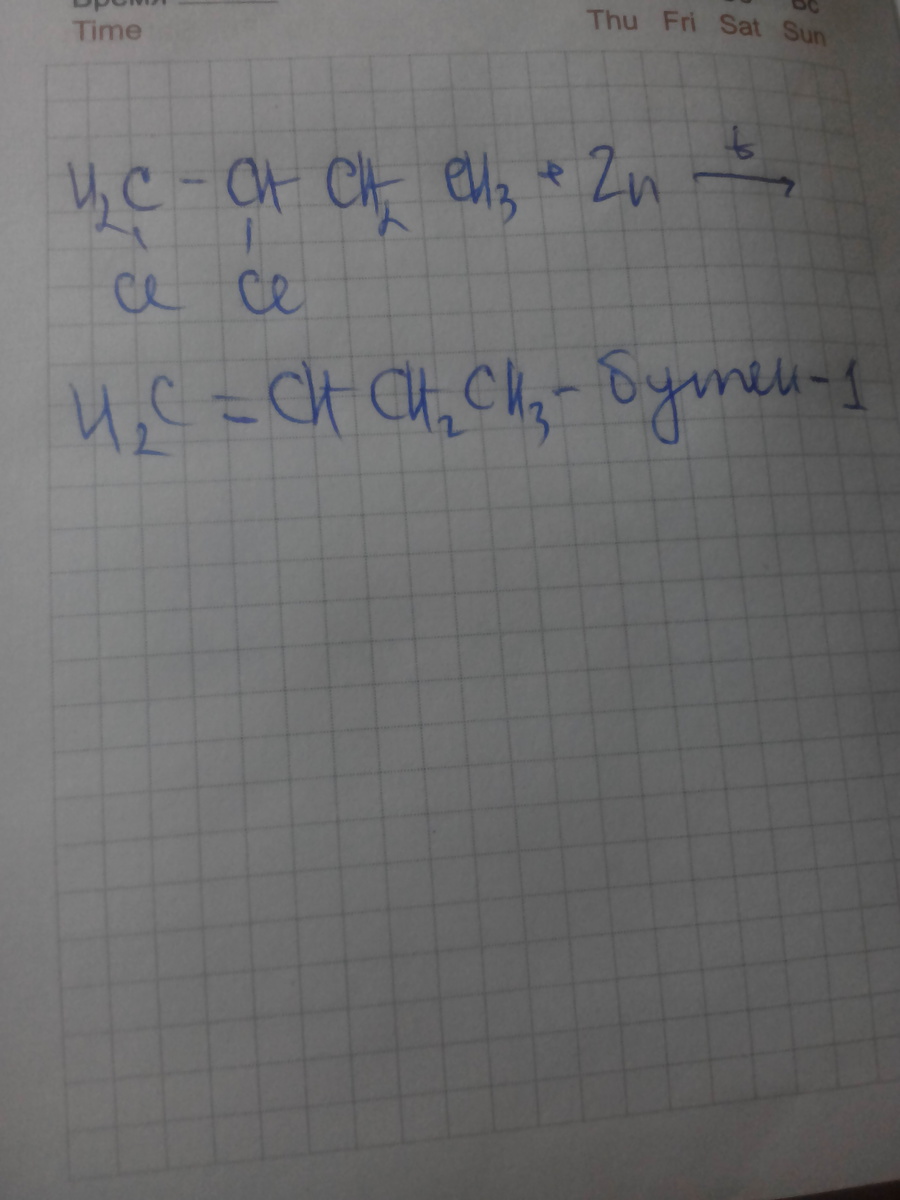 Время
Вс
Time Thu Fri Sat Sun
H₂C - CH CH₂ CH₃ + Zn →t
Cl Cl
H₂C = CH CH₂ CH₃ - бутен-1